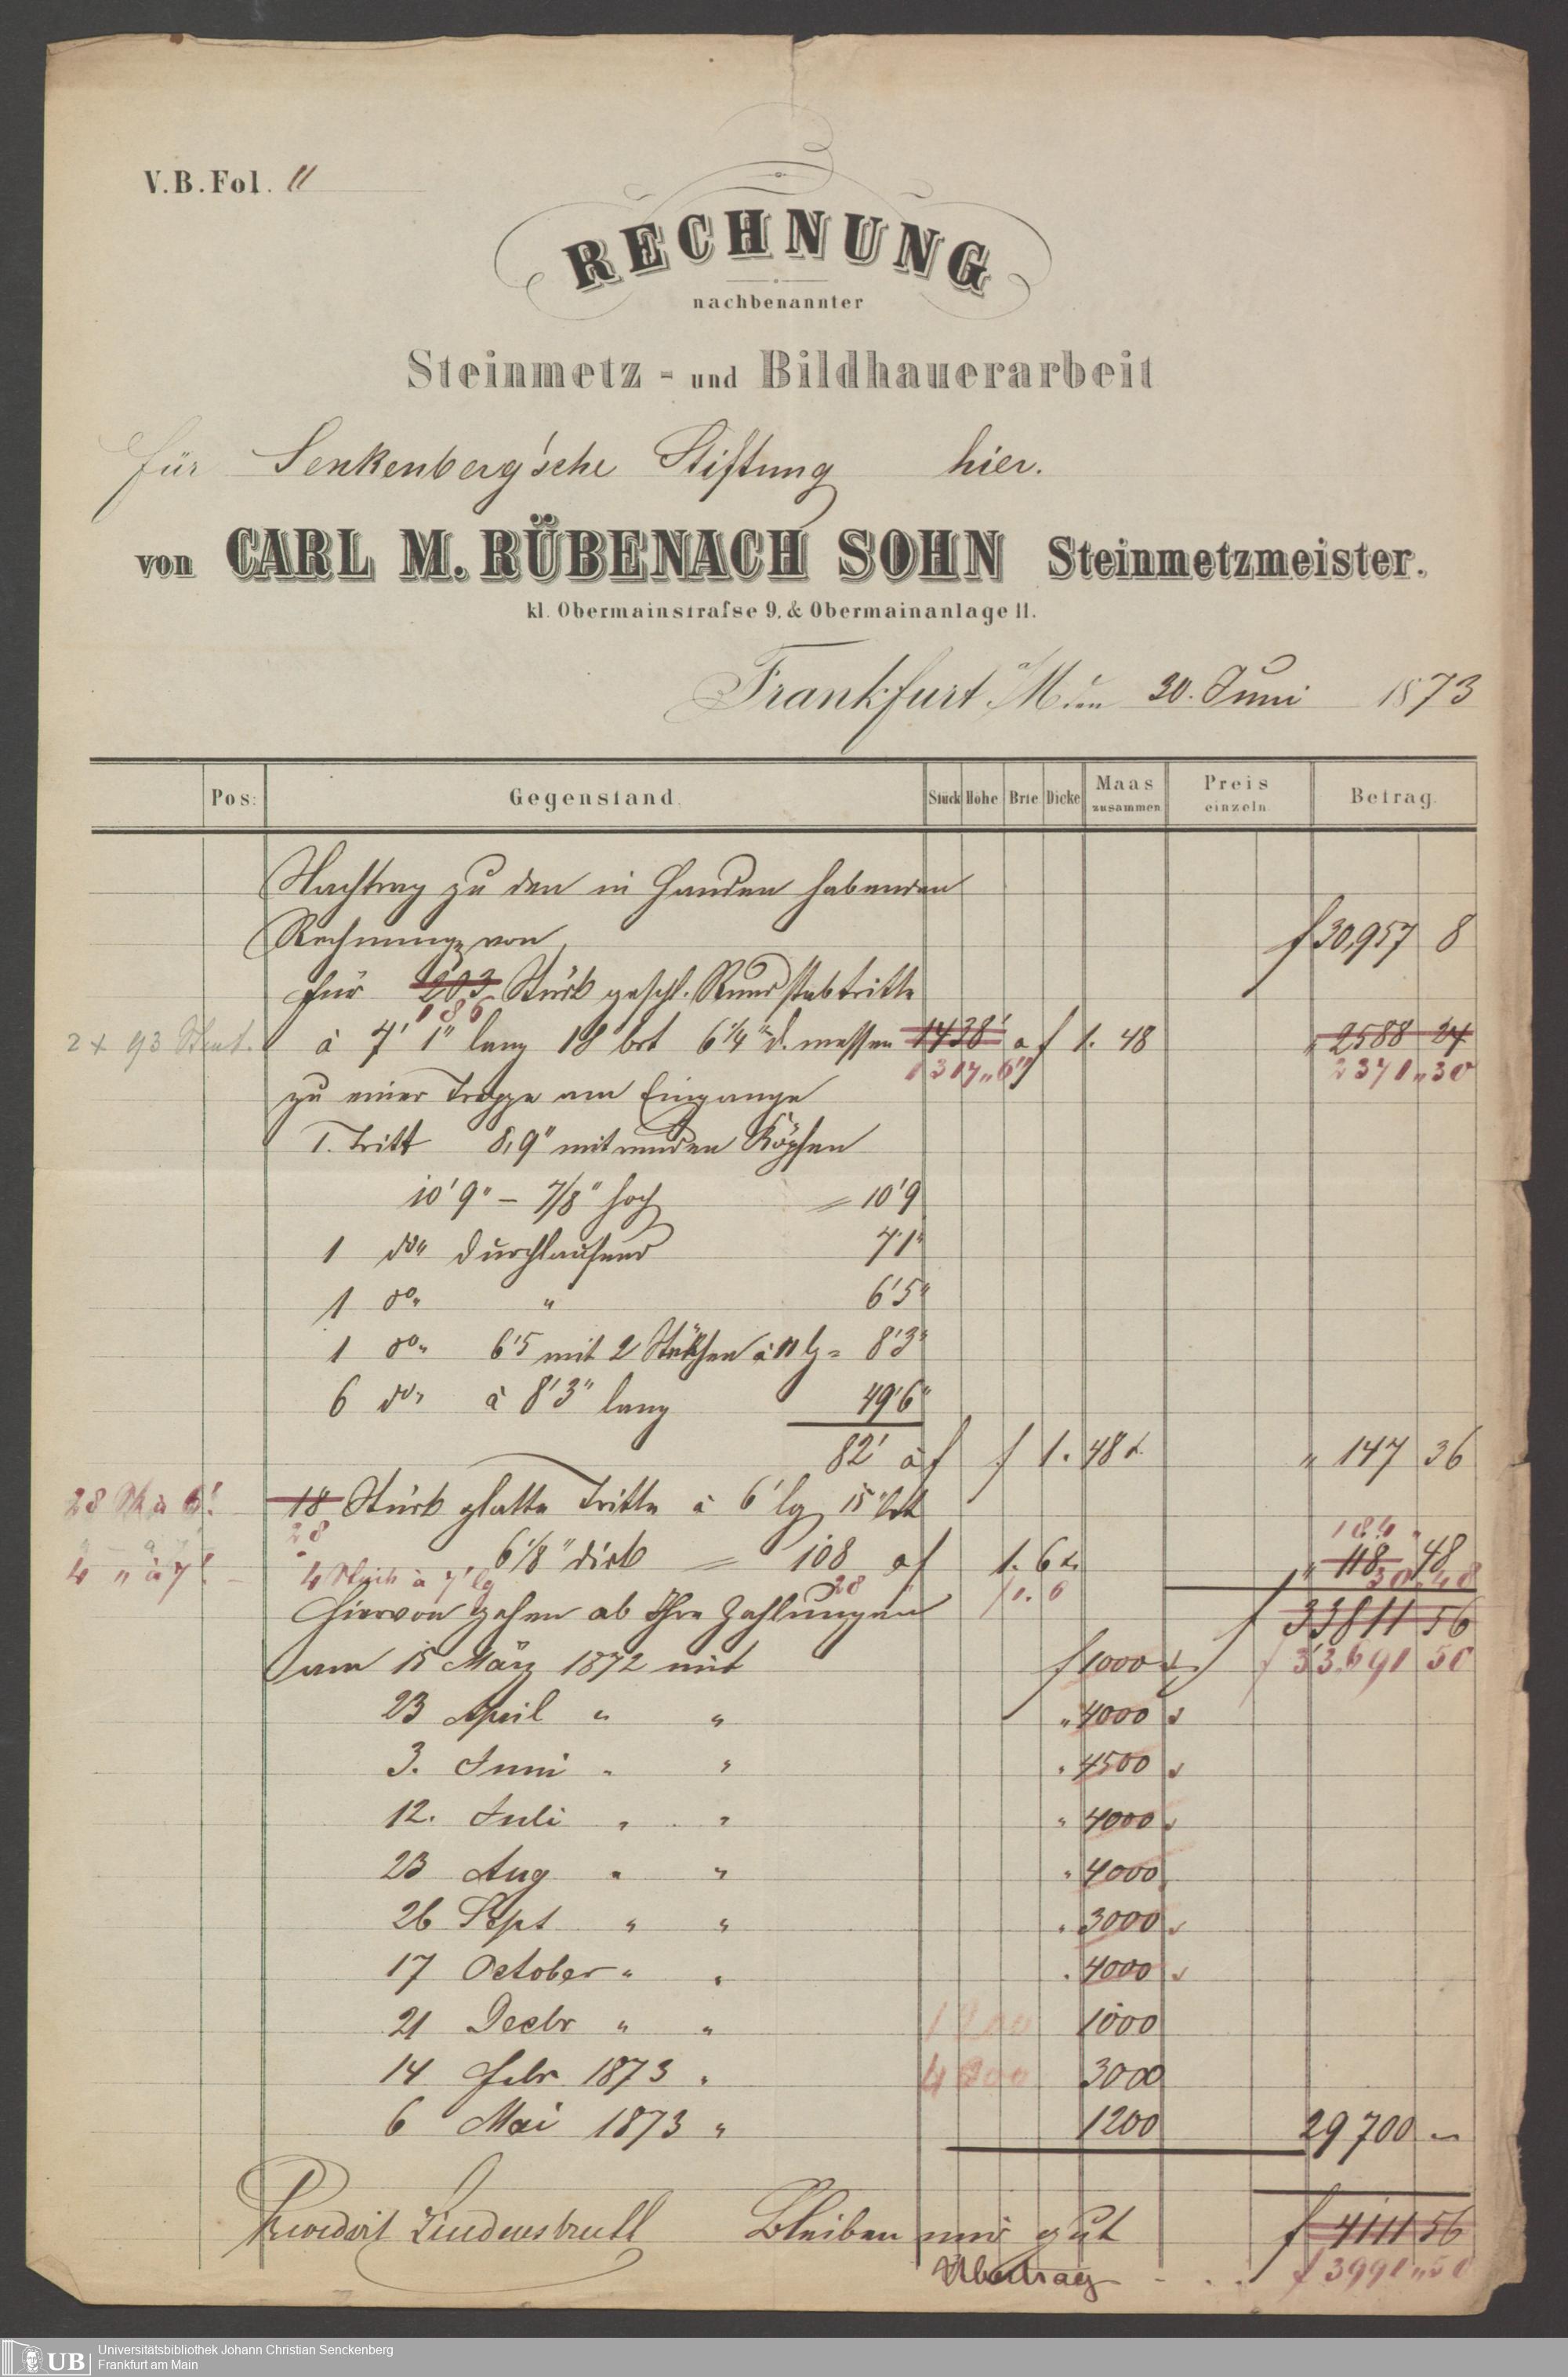 V.B.Fol. 11
RECHNUNG
nachbenannter
Steinmetz - und Bildhauerarbeit
für Senkenberg'sche Stiftung hier.
von CARL M. RÜBENACH SOHN Steinmetzmeister.
kl. Obermainstraſse 9, & Obermainanlage 11.
Frankfurt a/M den 30. Juni 1873
Pos: Gegenstand. Stück Höhe Brte Dicke Maas zusammen Preis einzeln Betrag.
Nachtrag zu den in Handen habenden
Rechnung von f 30,957 8
für 203 Stück geschl. Rundstabtritte
186
2 x 93 à 7' 1" lang 18" brt 6 1/4" d. messen 1438' a f 1. 48 " 2588 24
1317 " 6" 2371 " 30
zu einer Treppe am Eingange
1. Tritt 8,9" mit runden Köpfen
10' 9" – 7/8" hoch = 10' 9
1 do " durchlaufend 7' 1"
1 do " " 6' 5"
1 do " 6' 5 mit 2 Stückchen à 11 lg = 8' 3"
6 do " à 8' 3" lang 49' 6"
82' à f f 1. 48 x " 147 36
28 Stk à 6' 18 Stück glatte Tritte à 6' lg 15" brt
28 184 "
4 " à 7' 6 1/8" dick = 108 a f 1. 6 x " 118 48
4 Stück à 7' lg 28 1. 6 30 48
Hiervon gehen ab Ihre Zahlungen f 33811 56
am 15 März 1872 mit f 1000 f 33,691 50
23 April " " " 4000
3. Juni " " " 4500
12. Juli " " " 4000
23 Aug " " " 4000
26 Sept " " " 3000
17 October " " " 4000
21 Decbr " " 1000
14 Febr 1873 " 4000 3000
6 Mai 1873 " 1200 29700 –
Bleiben mir gut f 4111 56
Übertrag - . . . f 3991 " 50
UB Universitätsbibliothek Johann Christian Senckenberg
Frankfurt am Main